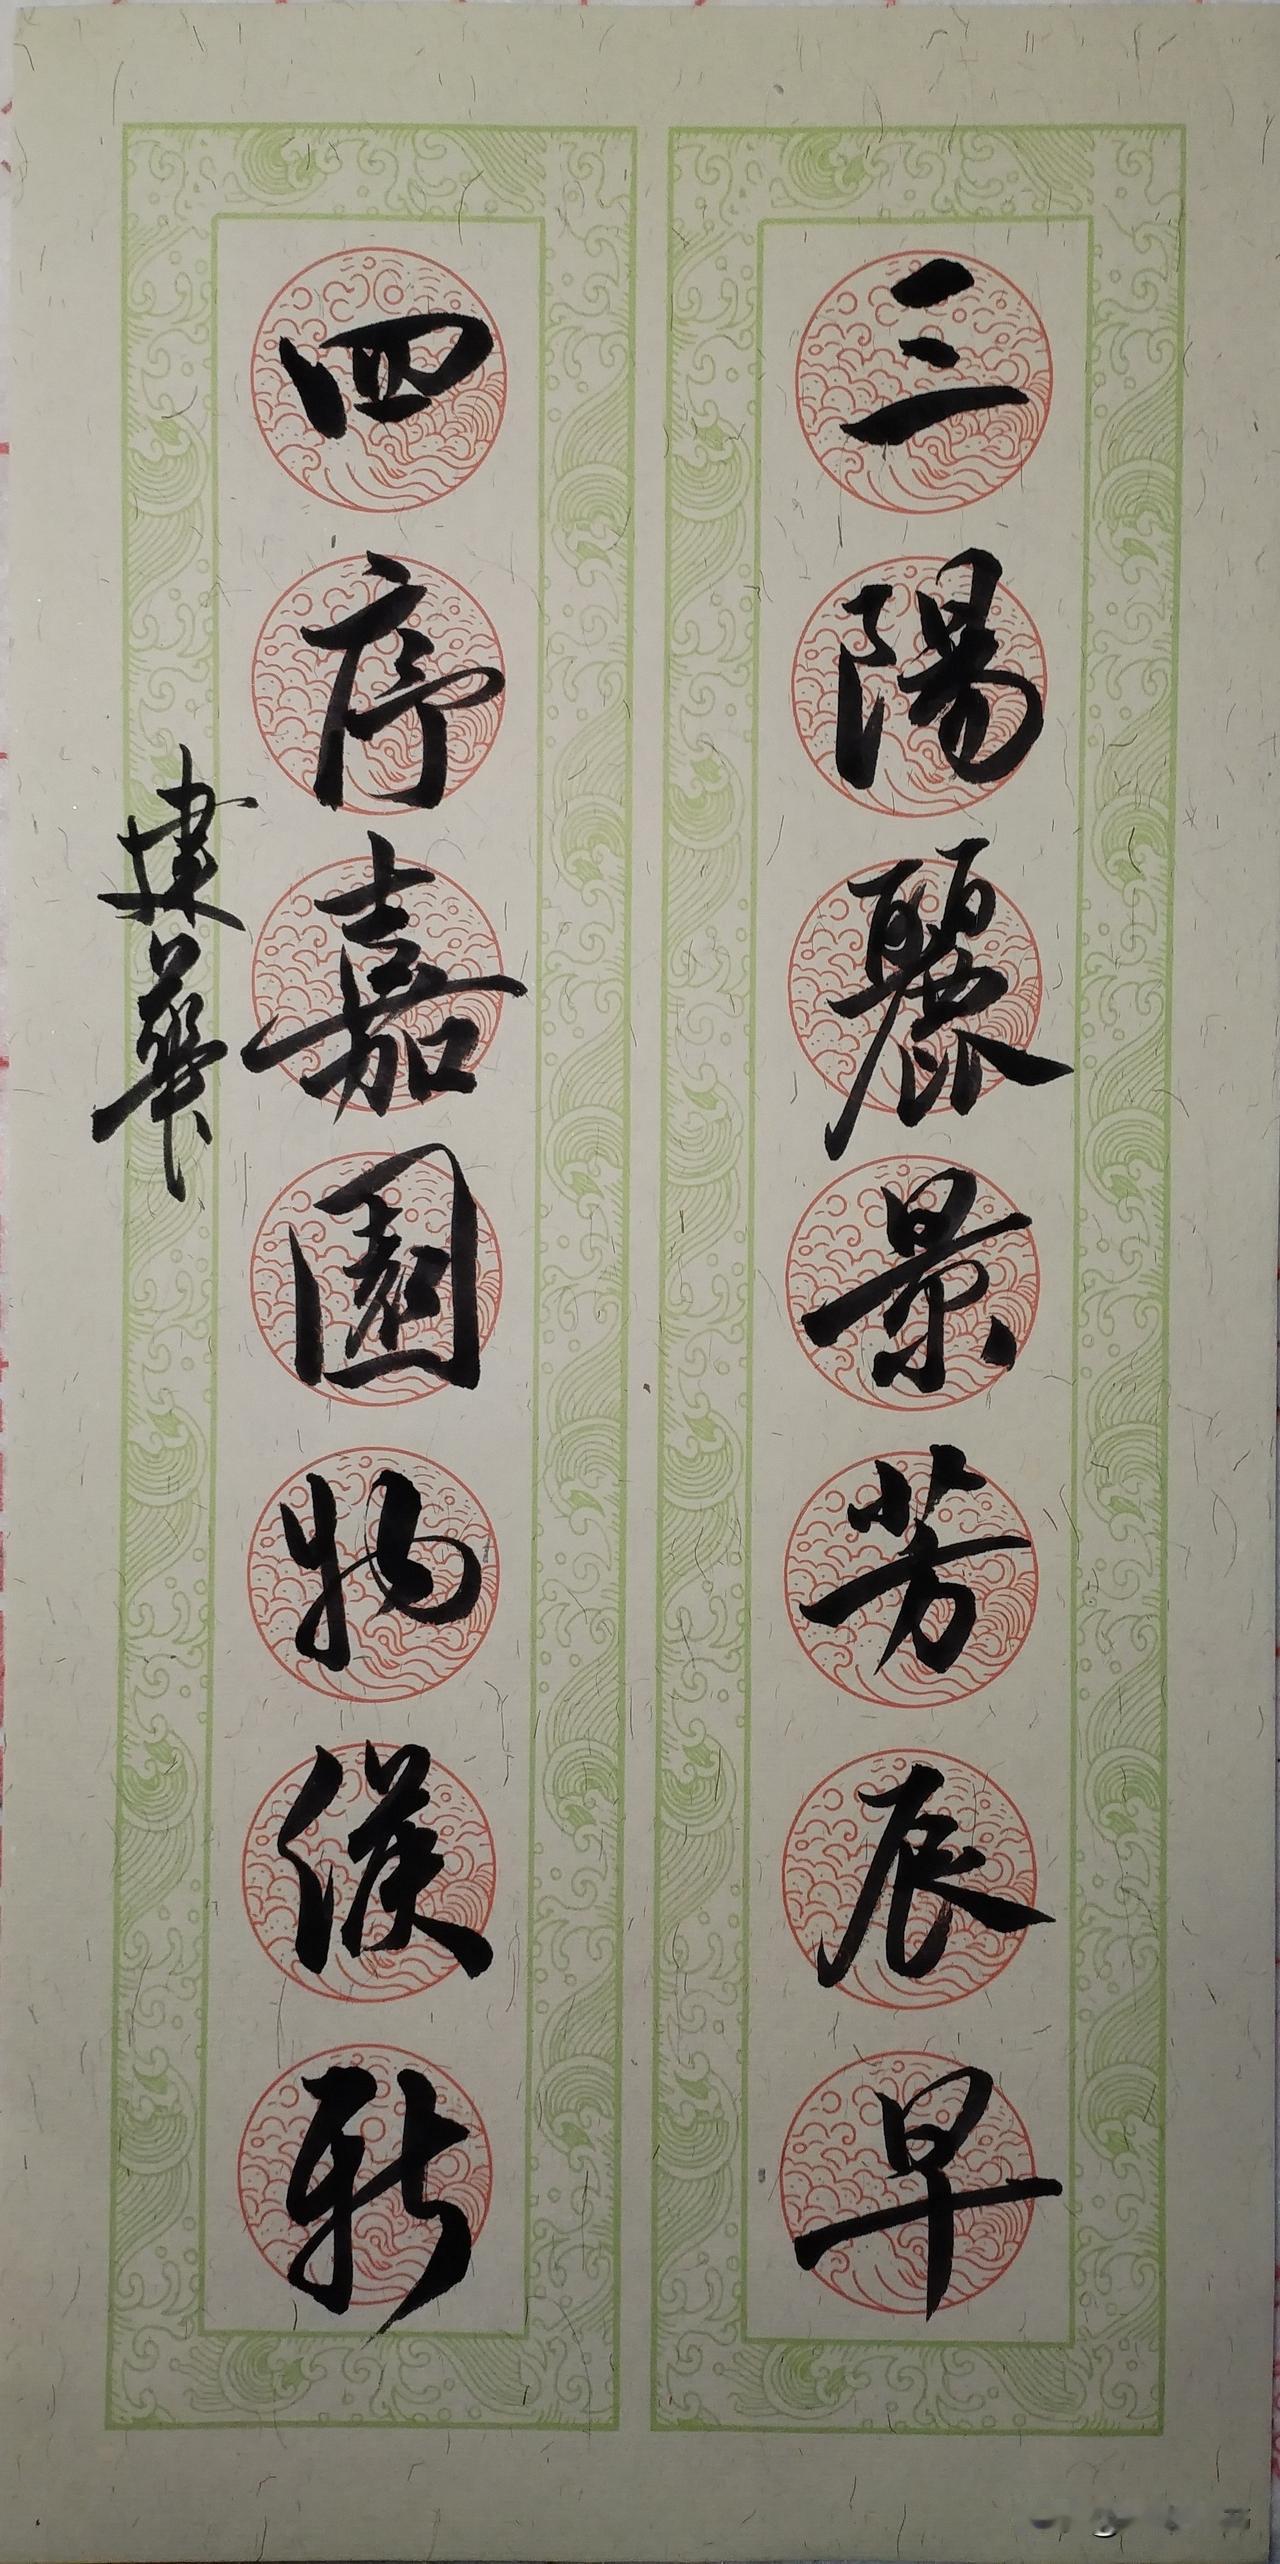 三陽麗景芳辰早
四序嘉園物候新
建華